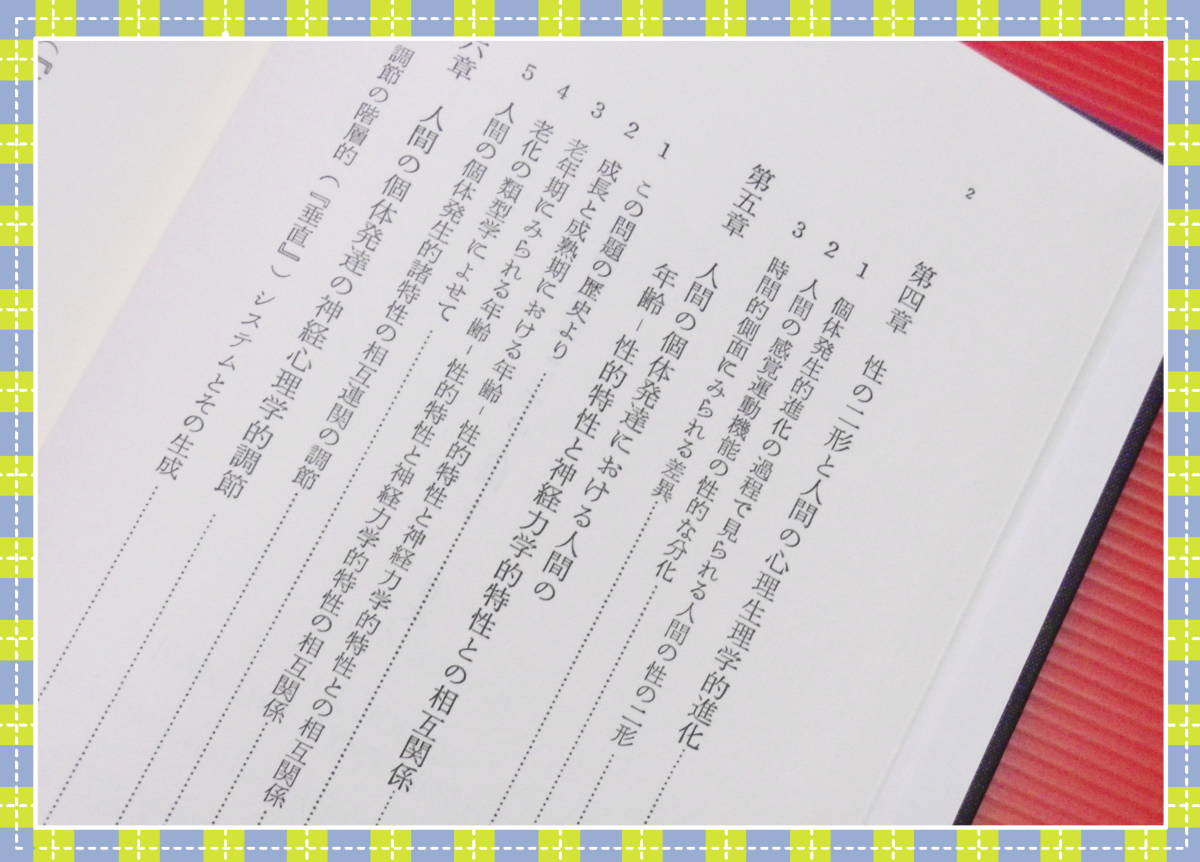 2
第四章 性の二形と人間の心理生理学的進化
1 個体発生的進化の過程で見られる人間の性の二形
2 人間の感覚運動機能の性的な分化
3 時間的側面にみられる差異
第五章 人間の個体発達における人間の
年齢－性的特性と神経力学的特性との相互関係
1 この問題の歴史より
2 成長と成熟期における年齢－性的特性と神経力学的特性との相互関係
3 老年期にみられる年齢－性的特性と神経力学的特性の相互関係
4 老化の類型学によせて
5 人間の個体発生的諸特性の相互連関の調節
六章 人間の個体発達の神経心理学的調節
調節の階層的（『垂直』）システムとその生成
（『